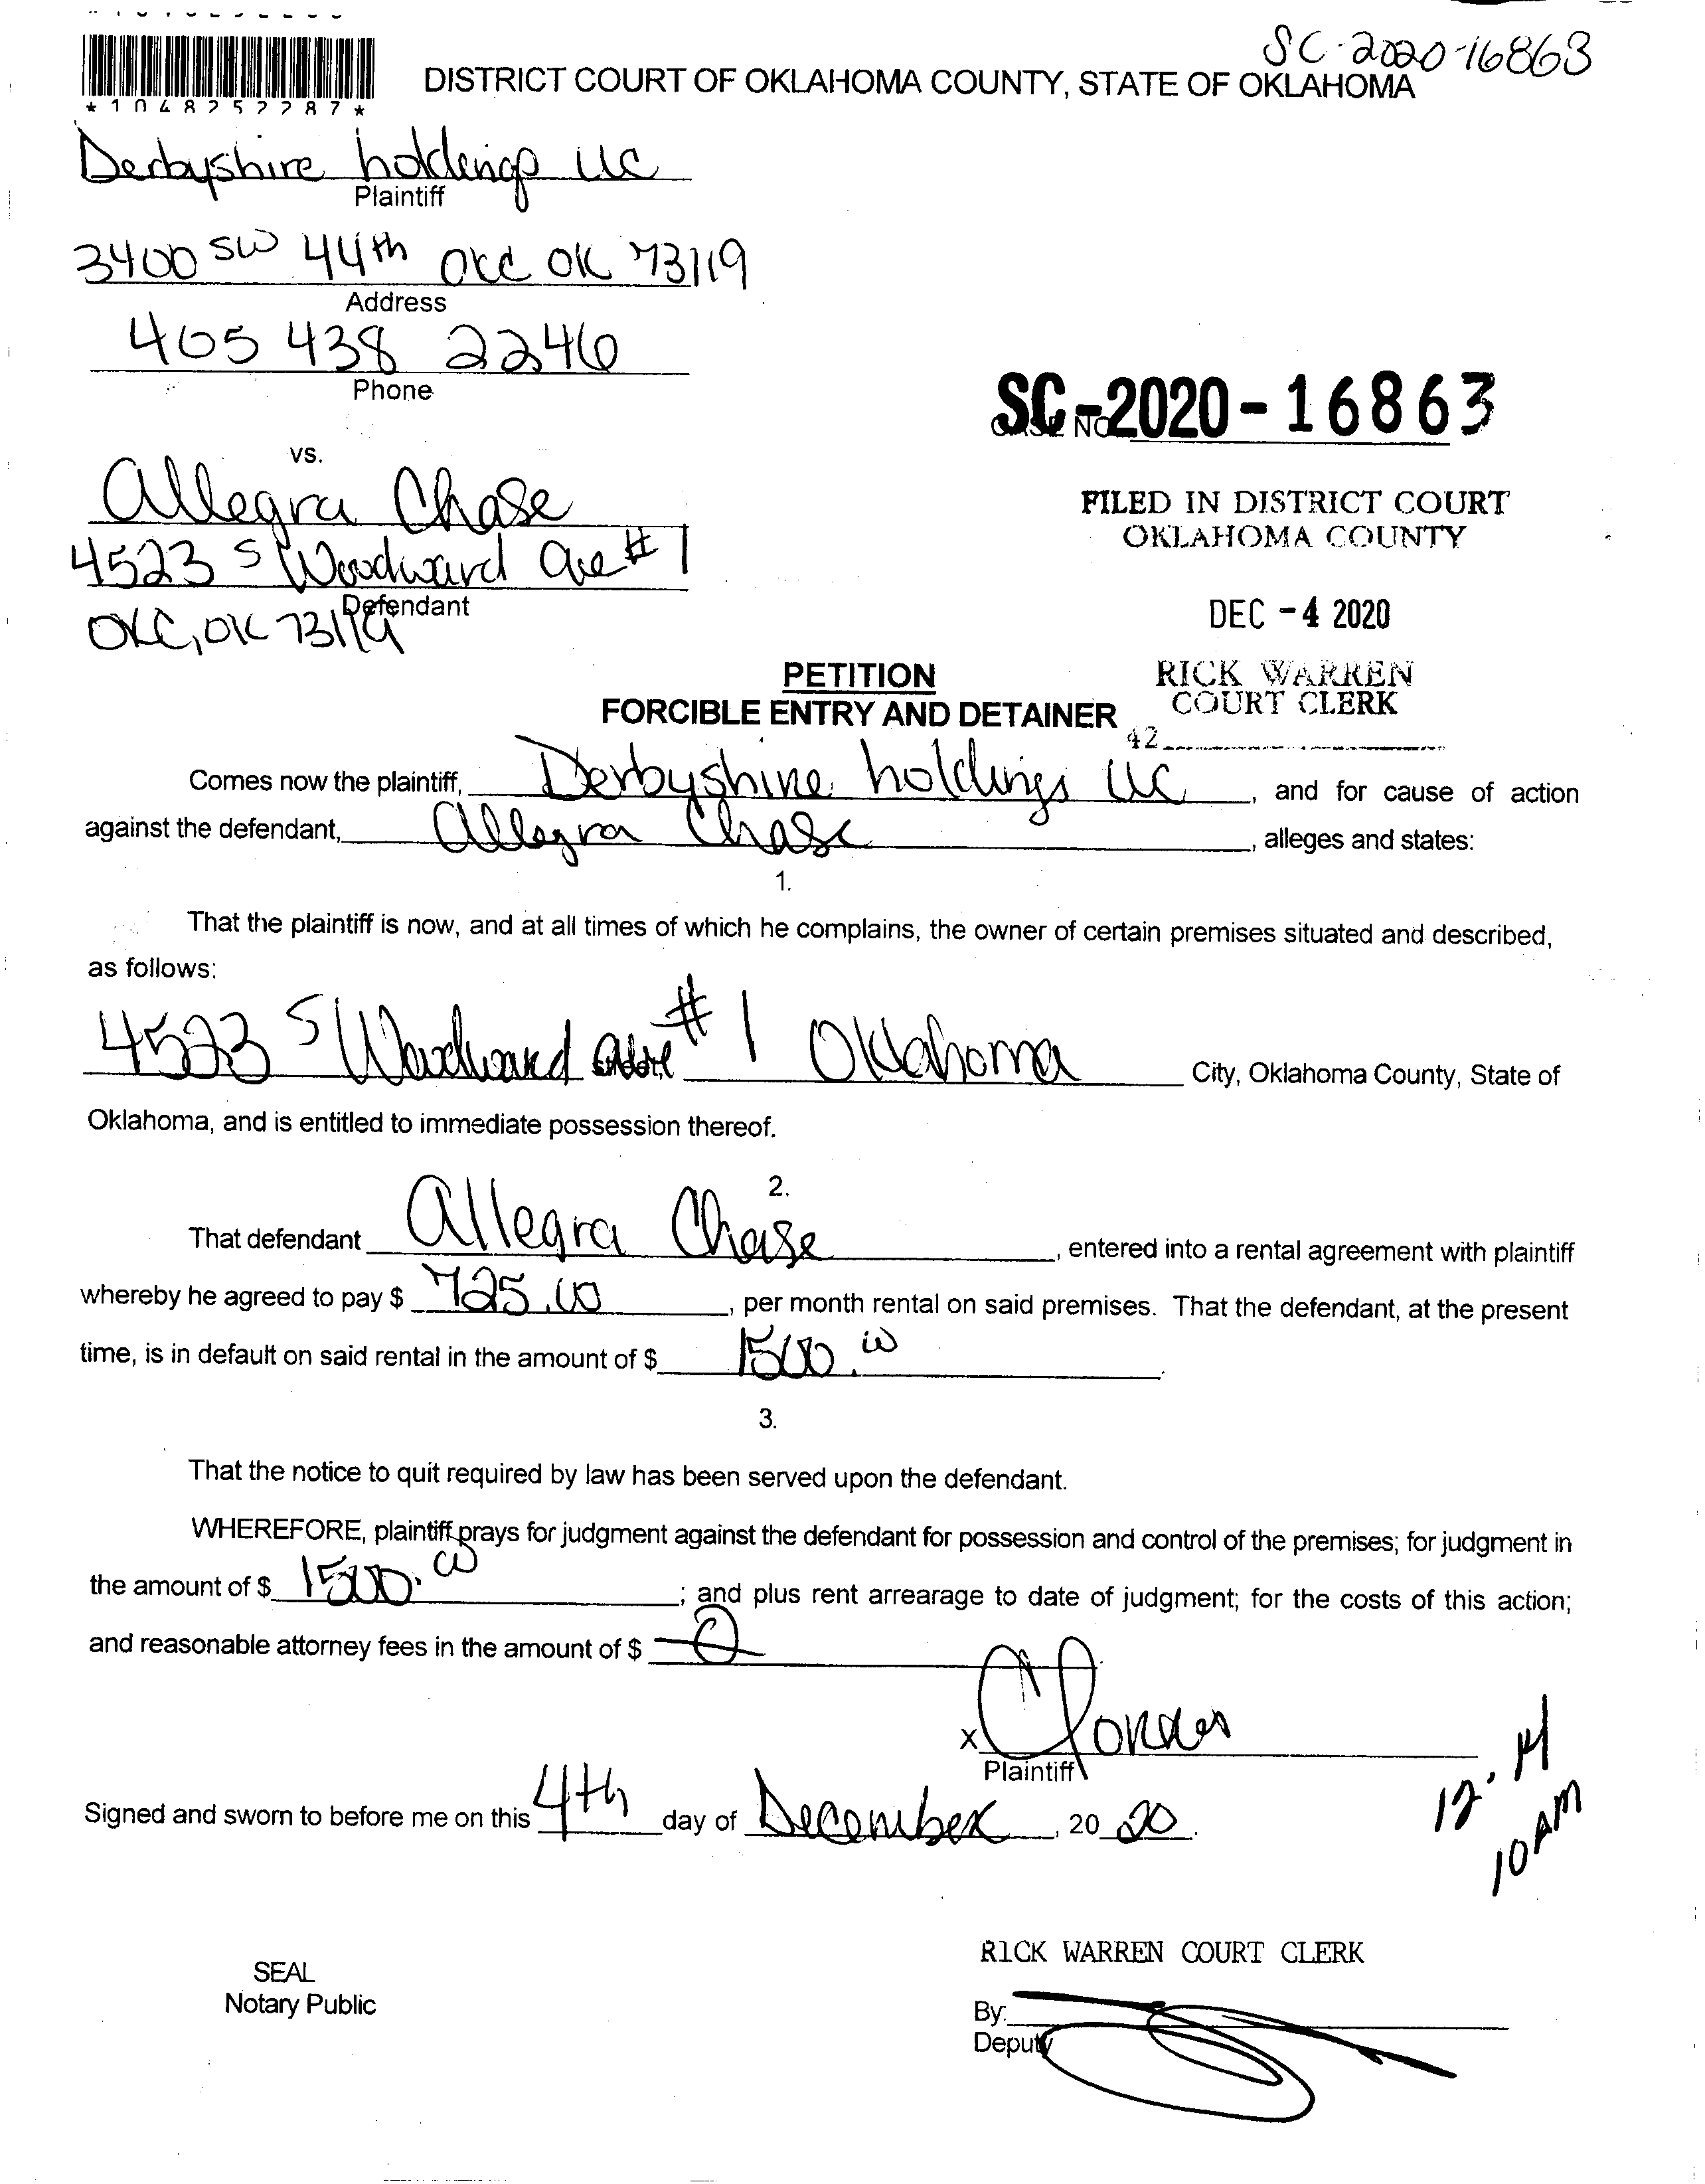 SC-2020-16863
*1048252287*
DISTRICT COURT OF OKLAHOMA COUNTY, STATE OF OKLAHOMA
Derbyshire holdings LLC
Plaintiff
3400 SW 44th OKC OK 73119
Address
405 438 2246
Phone
SC-2020-16863
CASE NO.
vs.
Allegra Chase
4523 S Woodward Ave #1
Defendant
OKC, OK 73119
FILED IN DISTRICT COURT
OKLAHOMA COUNTY
DEC -4 2020
RICK WARREN
COURT CLERK
42
PETITION
FORCIBLE ENTRY AND DETAINER
Comes now the plaintiff, Derbyshire holdings LLC, and for cause of action
against the defendant, Allegra Chase, alleges and states:
1.
That the plaintiff is now, and at all times of which he complains, the owner of certain premises situated and described,
as follows:
4523 S Woodward Ave #1 Oklahoma City, Oklahoma County, State of
Oklahoma, and is entitled to immediate possession thereof.
2.
That defendant Allegra Chase, entered into a rental agreement with plaintiff
whereby he agreed to pay $ 725.00, per month rental on said premises. That the defendant, at the present
time, is in default on said rental in the amount of $ 1500.00.
3.
That the notice to quit required by law has been served upon the defendant.
WHEREFORE, plaintiff prays for judgment against the defendant for possession and control of the premises; for judgment in
the amount of $ 1500.00; and plus rent arrearage to date of judgment; for the costs of this action;
and reasonable attorney fees in the amount of $ 0
X
Plaintiff
Signed and sworn to before me on this 4th day of December, 20 20.
12.14
10 AM
RICK WARREN COURT CLERK
SEAL
Notary Public
By:
Deputy